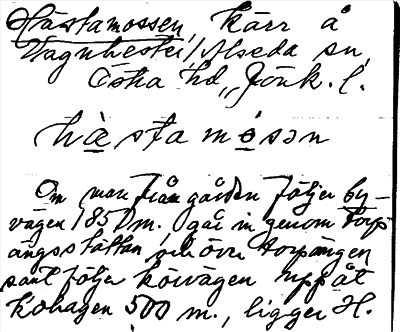 Hästamossen, kärr å
Vagnhester, Alseda sn,
Östra hd, Jönk. l.
hästamósən
Om man från gården följer by-
vägen 1850 m. går in genom torp
ängsstättan, och över torpängen
samt följer körvägen uppåt
kohagen 500 m., ligger H.